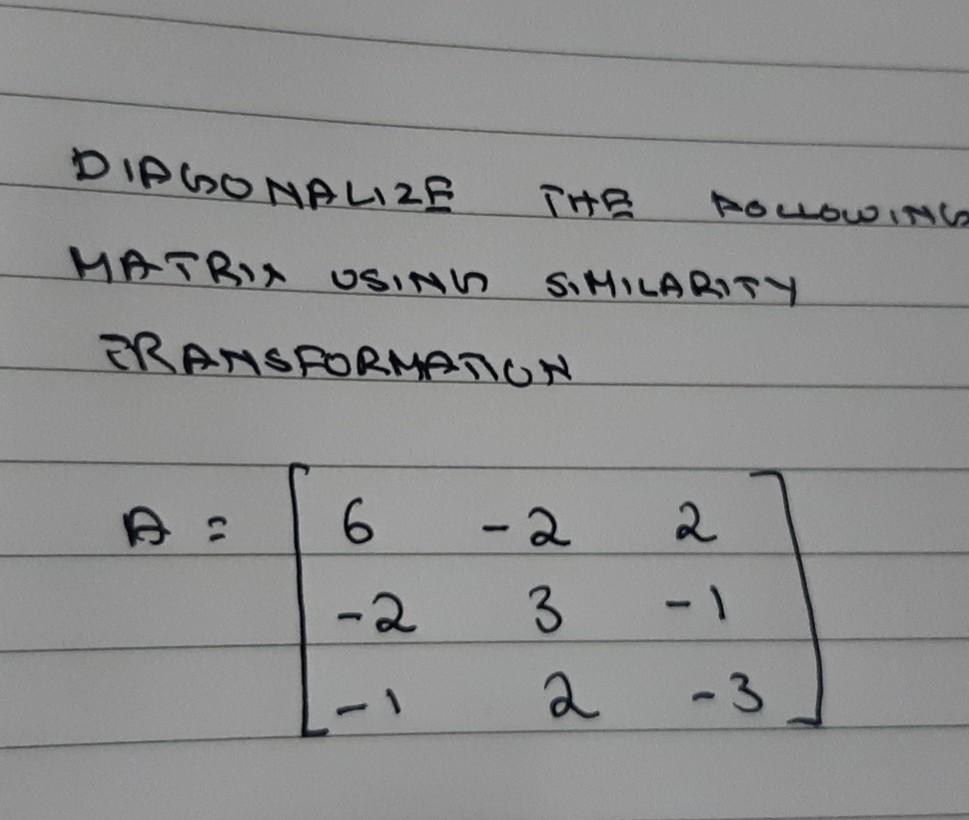 DIAGONALIZE THE FOLLOWING
MATRIX USING SIMILARITY
TRANSFORMATION
A = [ 6 -2 2
-2 3 -1
-1 2 -3 ]